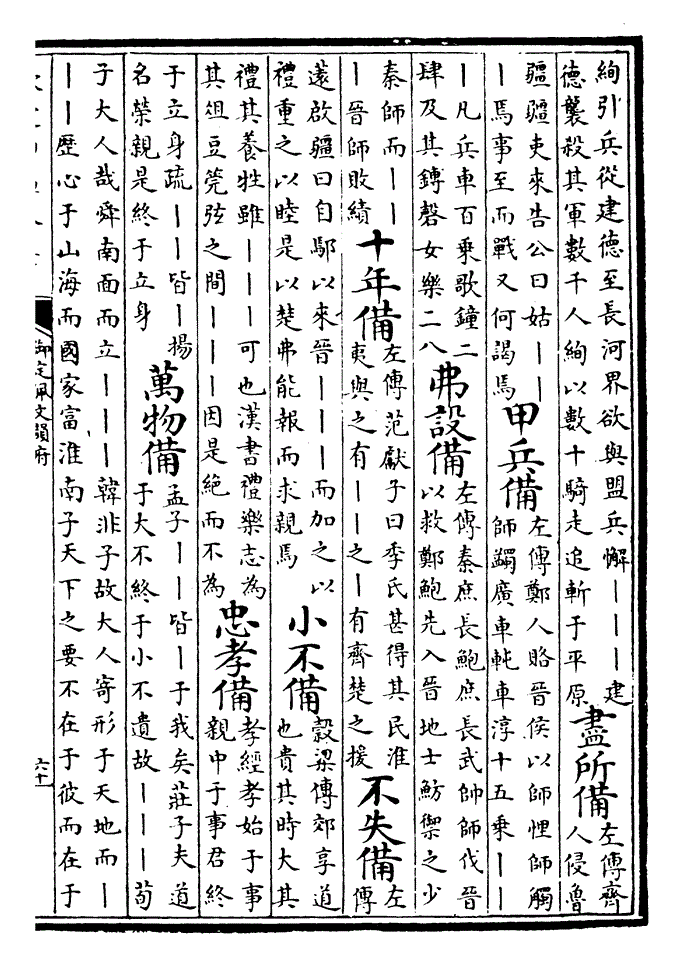 絢引兵從建德至長河界欲與盟兵懈｜｜｜建
德襲殺其軍數千人絢以數十騎走追斬于平原
盡所備
左傳齊
人侵魯
疆疆吏來告公曰姑｜｜
｜焉事至而戰又何謁焉
甲兵備
左傳鄭人賂晉侯以師悝師觸
師蠲廣車軘車淳十五乘｜｜
｜凡兵車百乘歌鐘二
肆及其鏄磬女樂二八
弗設備
左傳秦庶長鮑庶長武帥師伐晉
以救鄭鮑先入晉地士魴禦之少
秦師而｜｜
｜晉師敗績
十年備
左傳范獻子曰季氏甚得其民淮
夷與之有｜｜之｜有齊楚之援
不失備
左
傳
薳啟疆曰自鄢以來晉｜｜｜而加之以
禮重之以睦是以楚弗能報而求親焉
小不備
穀梁傳郊享道
也貴其時大其
禮其養牲雖｜｜｜可也漢書禮樂志為
其俎豆筦弦之間｜｜｜因是絕而不為
忠孝備
孝經孝始于事
親中于事君終
于立身疏｜｜皆｜揚
名榮親是終于立身
萬物備
孟子｜｜皆｜于我矣莊子夫道
于大不終于小不遺故｜｜｜荀
子大人哉舜南面而立｜｜｜韓非子故大人寄形于天地而｜
｜｜歷心于山海而國家富淮南子天下之要不在于彼而在于
御定佩文韻府
六十